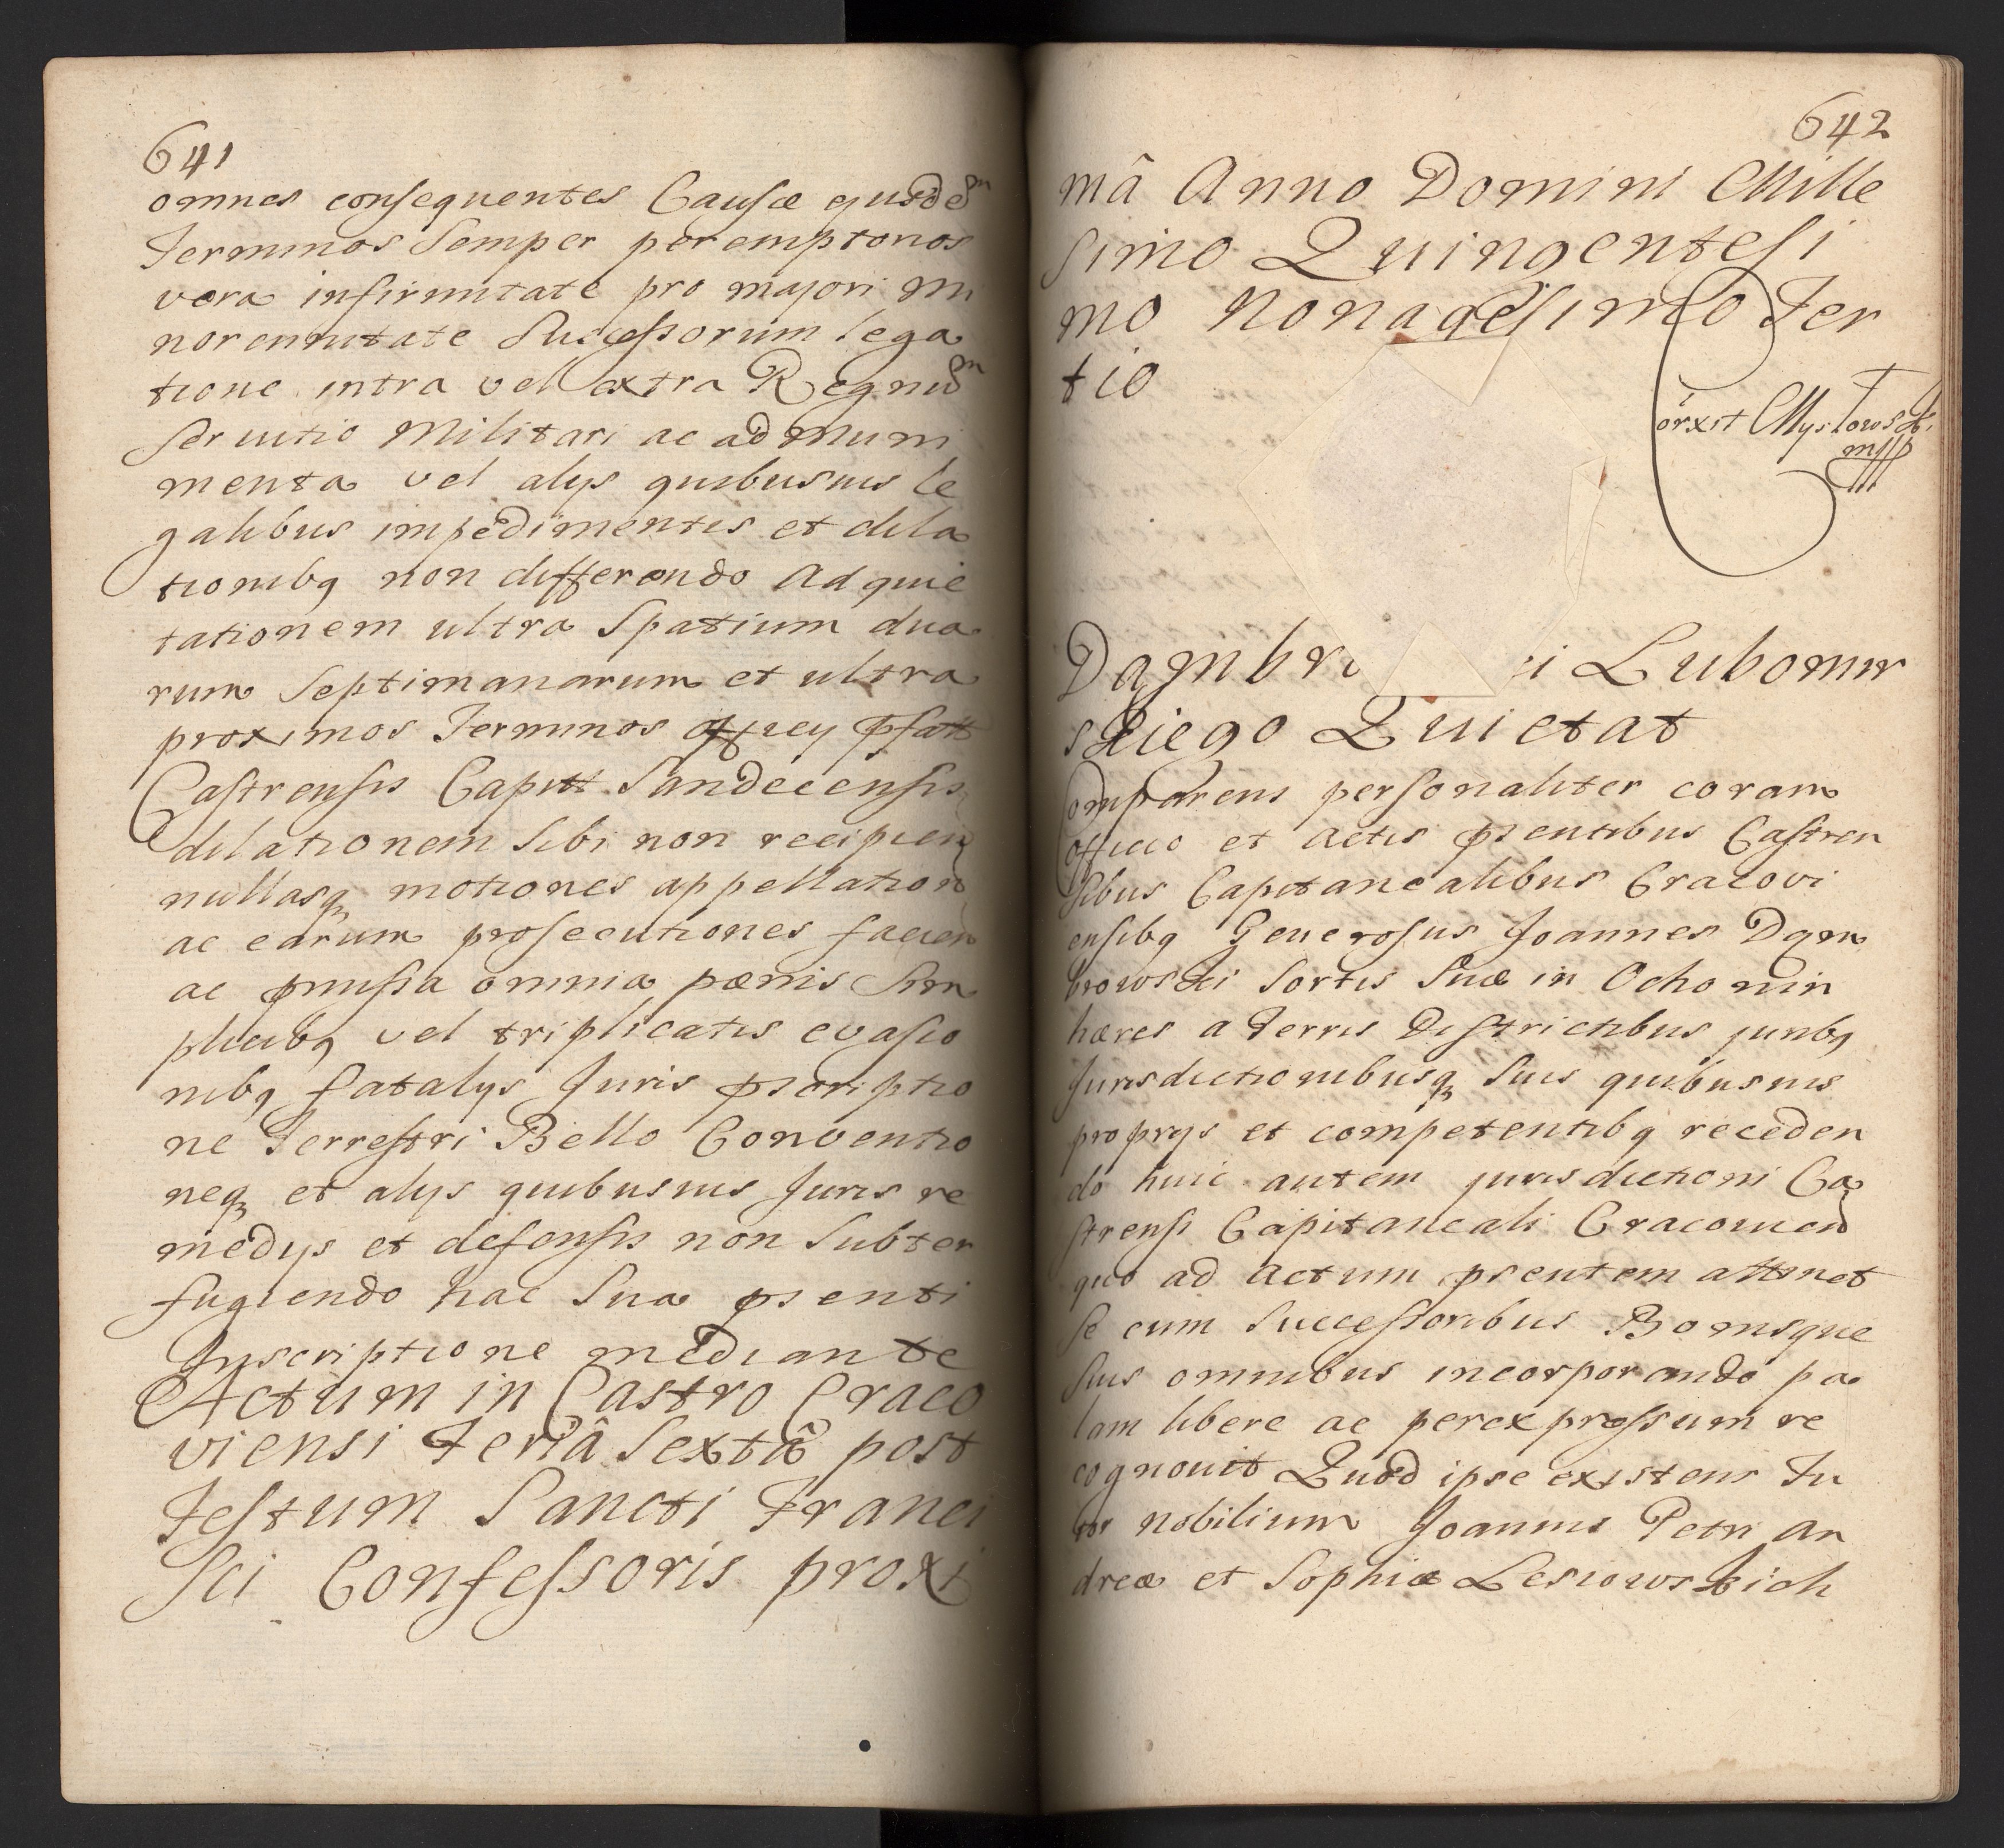 641
omnes consequentes Causæ quidem
Terminos Semper peremptorios
vera infirmitate pro majori mi
norennitate Successorum lega
tione intra vel extra Regnum
servitio Militari ac ad Muni
menta vel alys quibusvis le
galibus impedimentis et dila
tionibq non differendo Ad quie
tationem ultra Spatium dua
rum Septimanarum et ultra
proximos Terminos officy pfatt
Castrensis Capitt Sandecensis
dilationem Sibi non recipien
nullasq motiones appellation
ac earum prosecutiones facien
ac pmissa omnia pænis Sim
plicibq vel triplicatis evasio
nibq fatalys Juris pscriptio
ne Terrestri Bello Conventio
neq et alys quibusvis Juris re
medys et defensis non Subter
fugiendo hac Sua psenti
Inscriptione mediante
Actum in Castro Craco
viensi Feriâ Sextâ post
Festum Sancti Franci
sci Confessoris proxi
642
mâ Anno Domini Mille
simo Quingentesi
mo Nonagesimo Ter
tio
Mystowsk.
mpp
Dąmbr i Lubomir
skiego Quietat
Comparens personaliter coram
officio et Actis psentibus Castren
sibus Capitanealibus Cracovi
ensibq Generosus Joannes Dąm
browski Sortis Suæ in Ochomin
hæres a Terris Districtibus juribq
Jurisdictionibusq Suis quibusvis
proprys et competentibq receden
do huic autem jurisdictioni Ca
strensi Capitaneali Cracovien
quo ad Actum psentem attinet
se cum Successoribus Bonisque
Suis omnibus incorporando pa
lam libere ac per expressum re
cognovit Quod ipse existens Tu
tor nobilium Joannis Petri An
dreæ et Sophiæ Lesiowskich